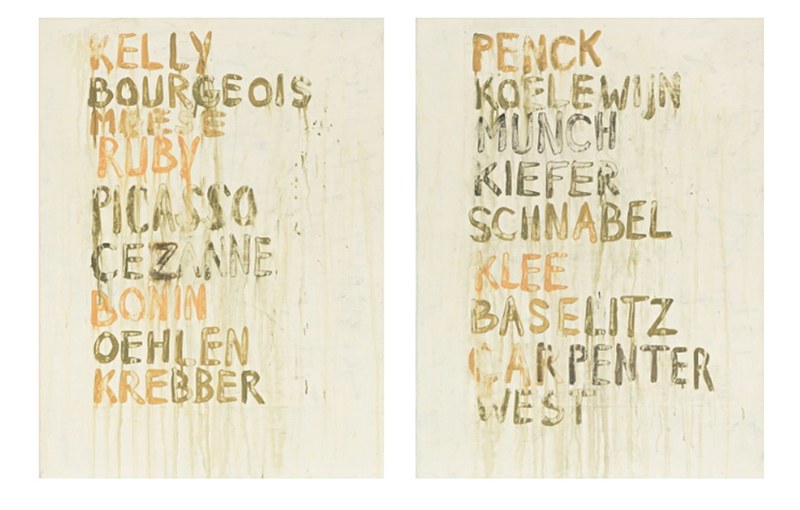 KELLY
BOURGEOIS
MEESE
RUBY
PICASSO
CEZANNE
BONIN
OEHLEN
KREBBER
PENCK
KOELEWIJN
MUNCH
KIEFER
SCHNABEL
KLEE
BASELITZ
CARPENTER
WEST